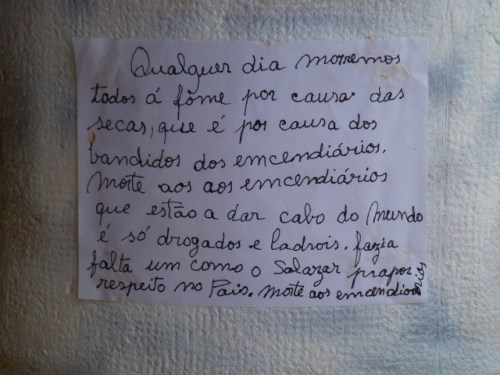 Qualquer dia morremos
todos á fôme por causa das
secas, que é por causa dos
bandidos dos emcendiários.
Morte aos aos emcendiários
que estão a dar cabo do Mundo
é só drogados e ladrois. fazia
falta um como o Salazar prapor
respeito no País. Morte aos emcendiários